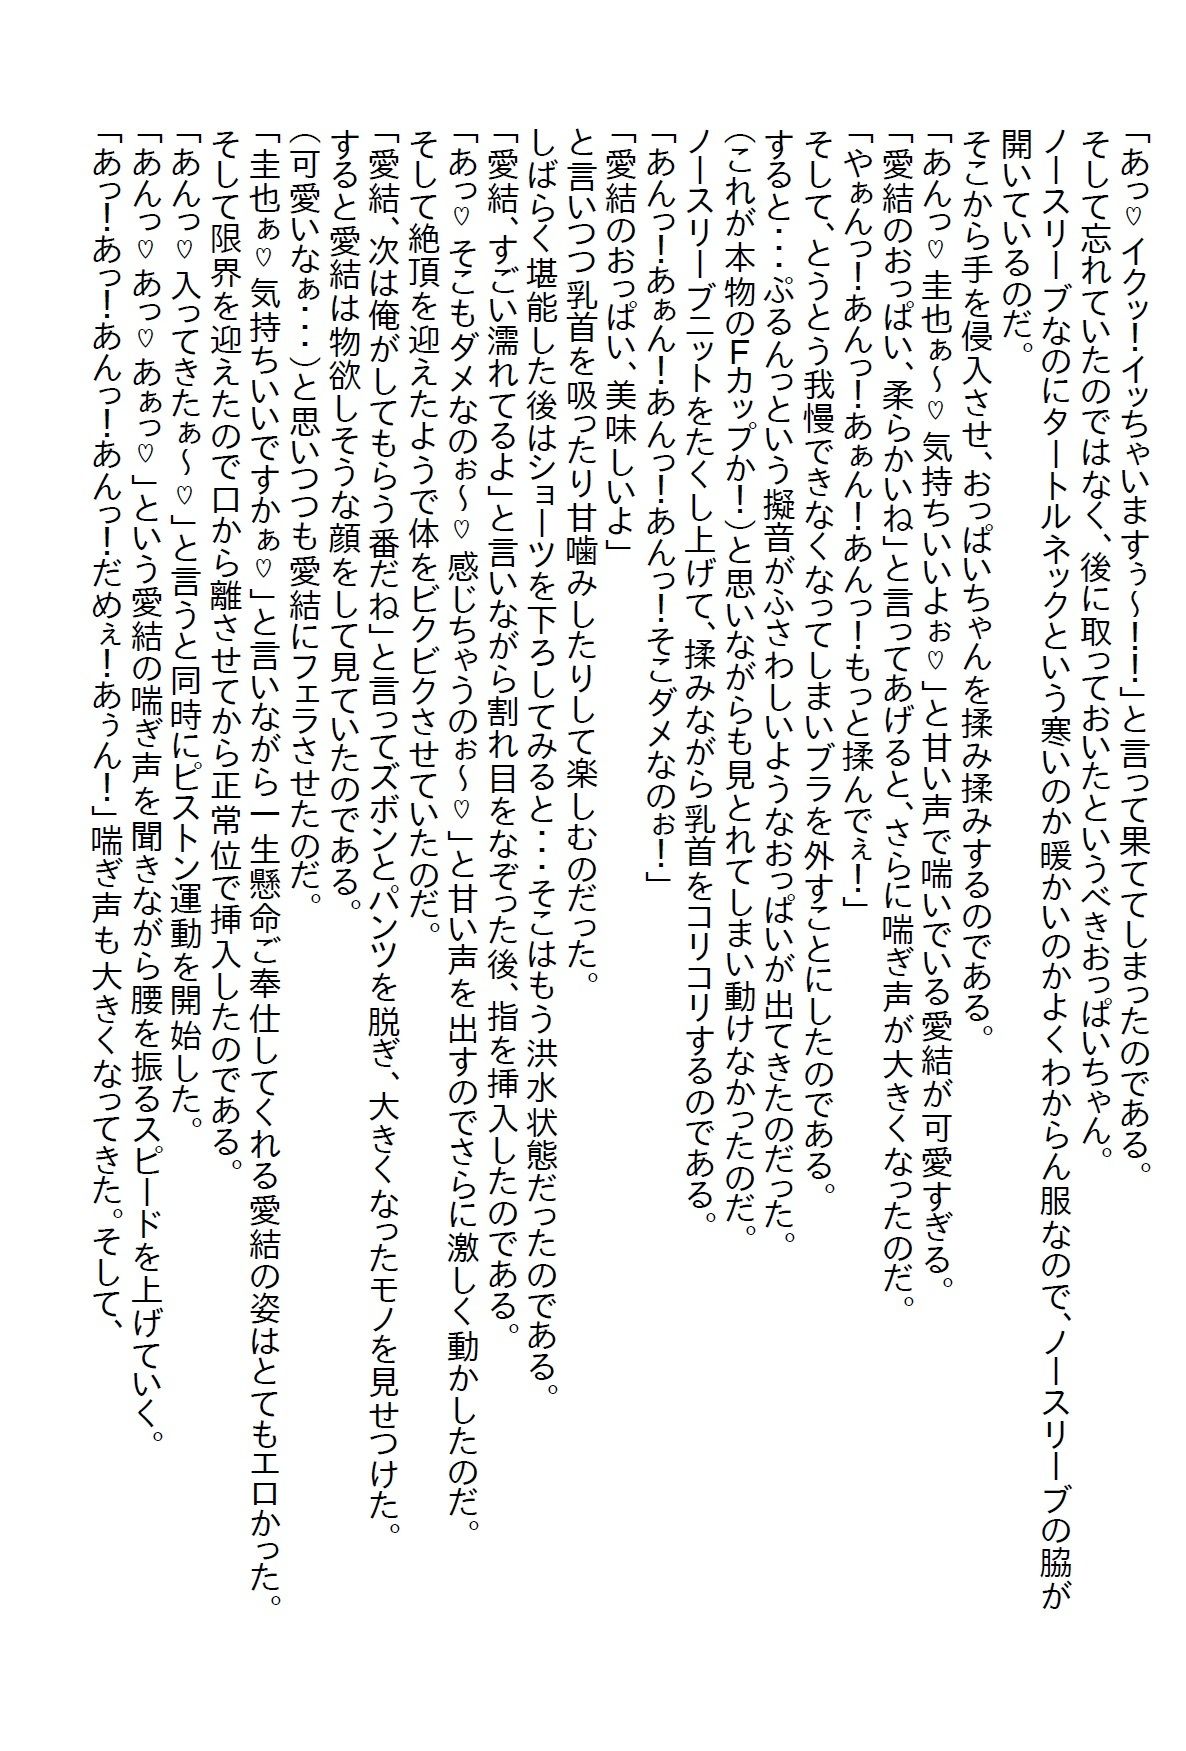 「あっ♡イクッ！イッちゃいますぅ～！！！」と言って果ててしまったのである。
そして忘れていたのではなく、後に取っておいたというべきおっぱいちゃん。
ノースリーブなのにタートルネックという寒いのか暖かいのかよくわからん服なので、ノースリーブの脇が
開いているのだ。
そこから手を侵入させ、おっぱいちゃんを揉み揉みするのである。
「あんっ♡圭也ぁ～♡気持ちいいよぉ♡」と甘い声で喘いでいる愛結が可愛すぎる。
「愛結のおっぱい、柔らかいね」と言ってあげると、さらに喘ぎ声が大きくなったのだ。
「やぁんっ！あんっ！あぁん！あんっ！もっと揉んでぇ！」
そして、とうとう我慢できなくなってしまいブラを外すことにしたのである。
すると・・・ぷるんっという擬音がふさわしいようなおっぱいが出てきたのだった。
（これが本物のＦカップか！）と思いながらも見とれてしまい動けなかったのだ。
ノースリーブニットをたくし上げて、揉みながら乳首をコリコリするのである。
「あんっ！あぁん！あんっ！あんっ！そこダメなのぉ！」
「愛結のおっぱい、美味しいよ」
と言いつつ乳首を吸ったり甘噛みしたりして楽しむのだった。
しばらく堪能した後はショーツを下ろしてみると・・・そこはもう洪水状態だったのである。
「愛結、すごい濡れてるよ」と言いながら割れ目をなぞった後、指を挿入したのである。
「あっ♡そこもダメなのぉ～♡感じちゃうのぉ～♡」と甘い声を出すのでさらに激しく動かしたのだ。
そして絶頂を迎えたようで体をビクビクさせていたのだ。
「愛結、次は俺がしてもらう番だね」と言ってズボンとパンツを脱ぎ、大きくなったモノを見せつけた。
すると愛結は物欲しそうな顔をして見ていたのである。
（可愛いなぁ・・・）と思いつつも愛結にフェラさせたのだ。
「圭也ぁ♡気持ちいいですかぁ♡」と言いながら一生懸命ご奉仕してくれる愛結の姿はとてもエロかった。
そして限界を迎えたので口から離させてから正常位で挿入したのである。
「あんっ♡入ってきたぁ～♡」と言うと同時にピストン運動を開始した。
「あんっ♡あっ♡あぁっ♡」という愛結の喘ぎ声を聞きながら腰を振るスピードを上げていく。
「あっ！あっ！あんっ！あんっ！だめぇ！あぅん！」喘ぎ声も大きくなってきた。そして、